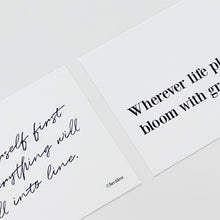 rself first
erything will
ll into line.
Wherever life pl
bloom with gr